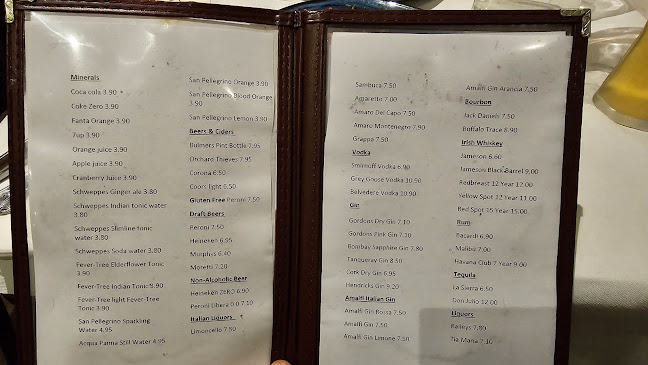 Minerals
Coca cola 3.90
Coke Zero 3.90
Fanta Orange 3.90
7up 3.90
Orange juice 3.90
Apple juice 3.90
Cranberry Juice 3.90
Schweppes Ginger ale 3.80
Schweppes Indian tonic water
3.80
Schweppes Slimline tonic
water 3.80
Schweppes Soda water 3.80
Fever-Tree Elderflower Tonic
3.90
Fever-Tree Indian Tonic 3.90
Fever-Tree light Fever-Tree
Tonic 3.90
San Pellegrino Sparkling
Water 4.95
Acqua Panna Still Water 4.95
San Pellegrino Orange 3.90
San Pellegrino Blood Orange
3.90
San Pellegrino Lemon 3.90
Beers & Ciders
Bulmers Pint Bottle 7.95
Orchard Thieves 7.95
Corona 6.50
Coors light 6.50
Gluten Free Peroni 7.50
Draft Beers
Peroni 7.50
Heineken 6.55
Murphys 6.40
Moretti 7.20
Non-Alcoholic Beer
Heineken ZERO 6.90
Peroni Libera 0.0 7.10
Italian Liquors
Limoncello 7.50
Sambuca 7.50
Amaretto 7.00
Amaro Del Capo 7.50
Amaro Montenegro 7.90
Grappa 7.50
Vodka
Smirnoff Vodka 6.90
Grey Goose Vodka 10.90
Belvedere Vodka 10.90
Gin
Gordons Dry Gin 7.10
Gordons Pink Gin 7.10
Bombay Sapphire Gin 7.80
Tanqueray Gin 8.50
Cork Dry Gin 6.95
Hendricks Gin 9.20
Amalfi Italian Gin
Amalfi Gin Rossa 7.50
Amalfi Gin 7.50
Amalfi Gin Limone 7.50
Amalfi Gin Arancia 7.50
Bourbon
Jack Daniels 7.50
Buffalo Trace 8.90
Irish Whiskey
Jameson 6.60
Jameson Black Barrel 9.00
Redbreast 12 Year 12.00
Yellow Spot 12 Year 11.00
Red Spot 15 Year 15.00
Rum
Bacardi 6.90
Malibu 7.00
Havana Club 7 Year 9.00
Tequila
La Sierra 6.50
Don Julio 12.00
Liquors
Baileys 7.80
Tia Maria 7.10